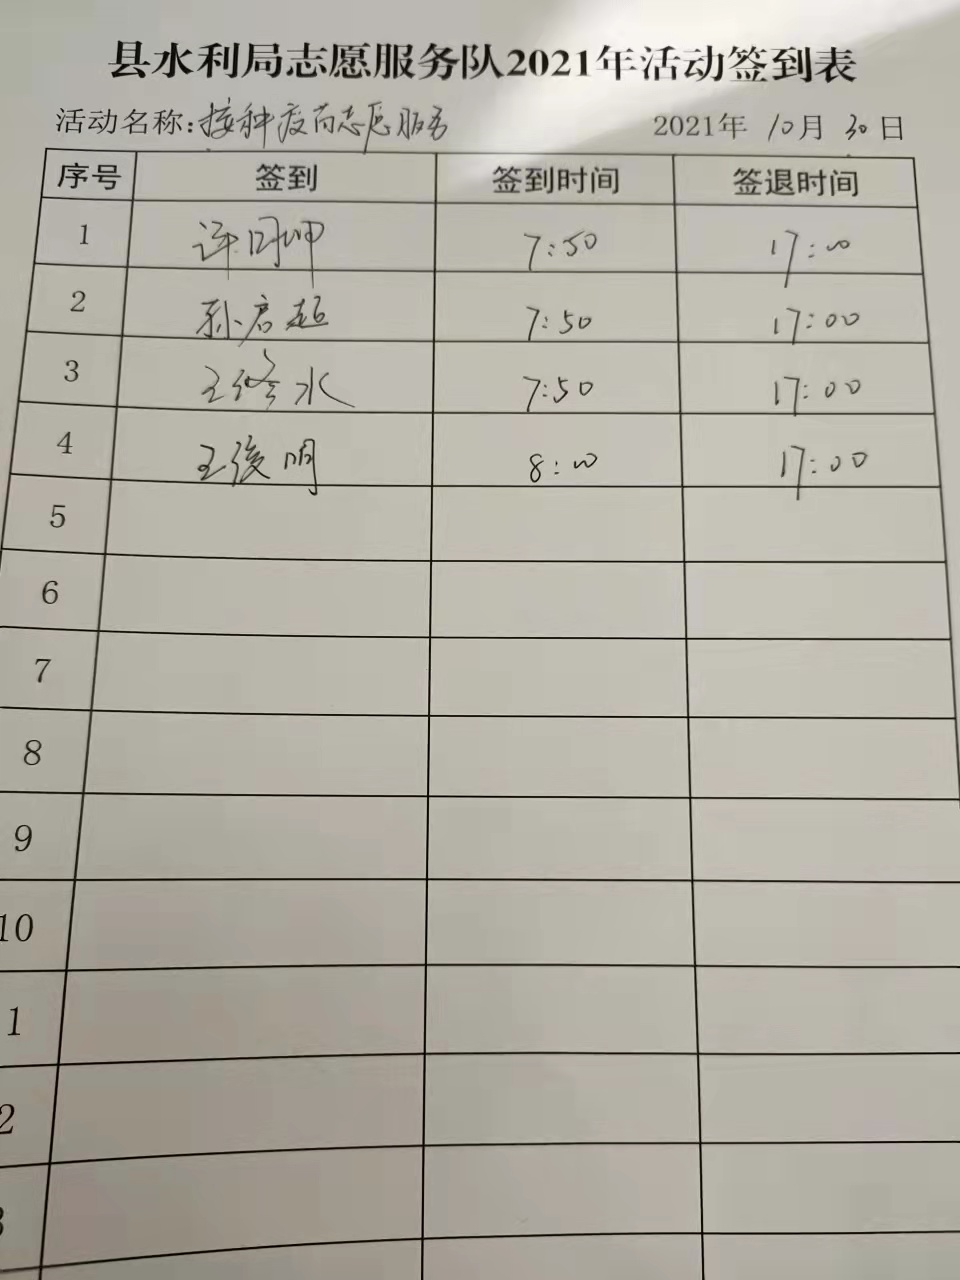 县水利局志愿服务队2021年活动签到表
活动名称:接种疫苗志愿服务 2021年 10月 30日
序号 签到 签到时间 签退时间
1 7:50 17:00
2 孙启超 7:50 17:00
3 王修水 7:50 17:00
4 王俊明 8:00 17:00
5
6
7
8
9
10
1
2
3